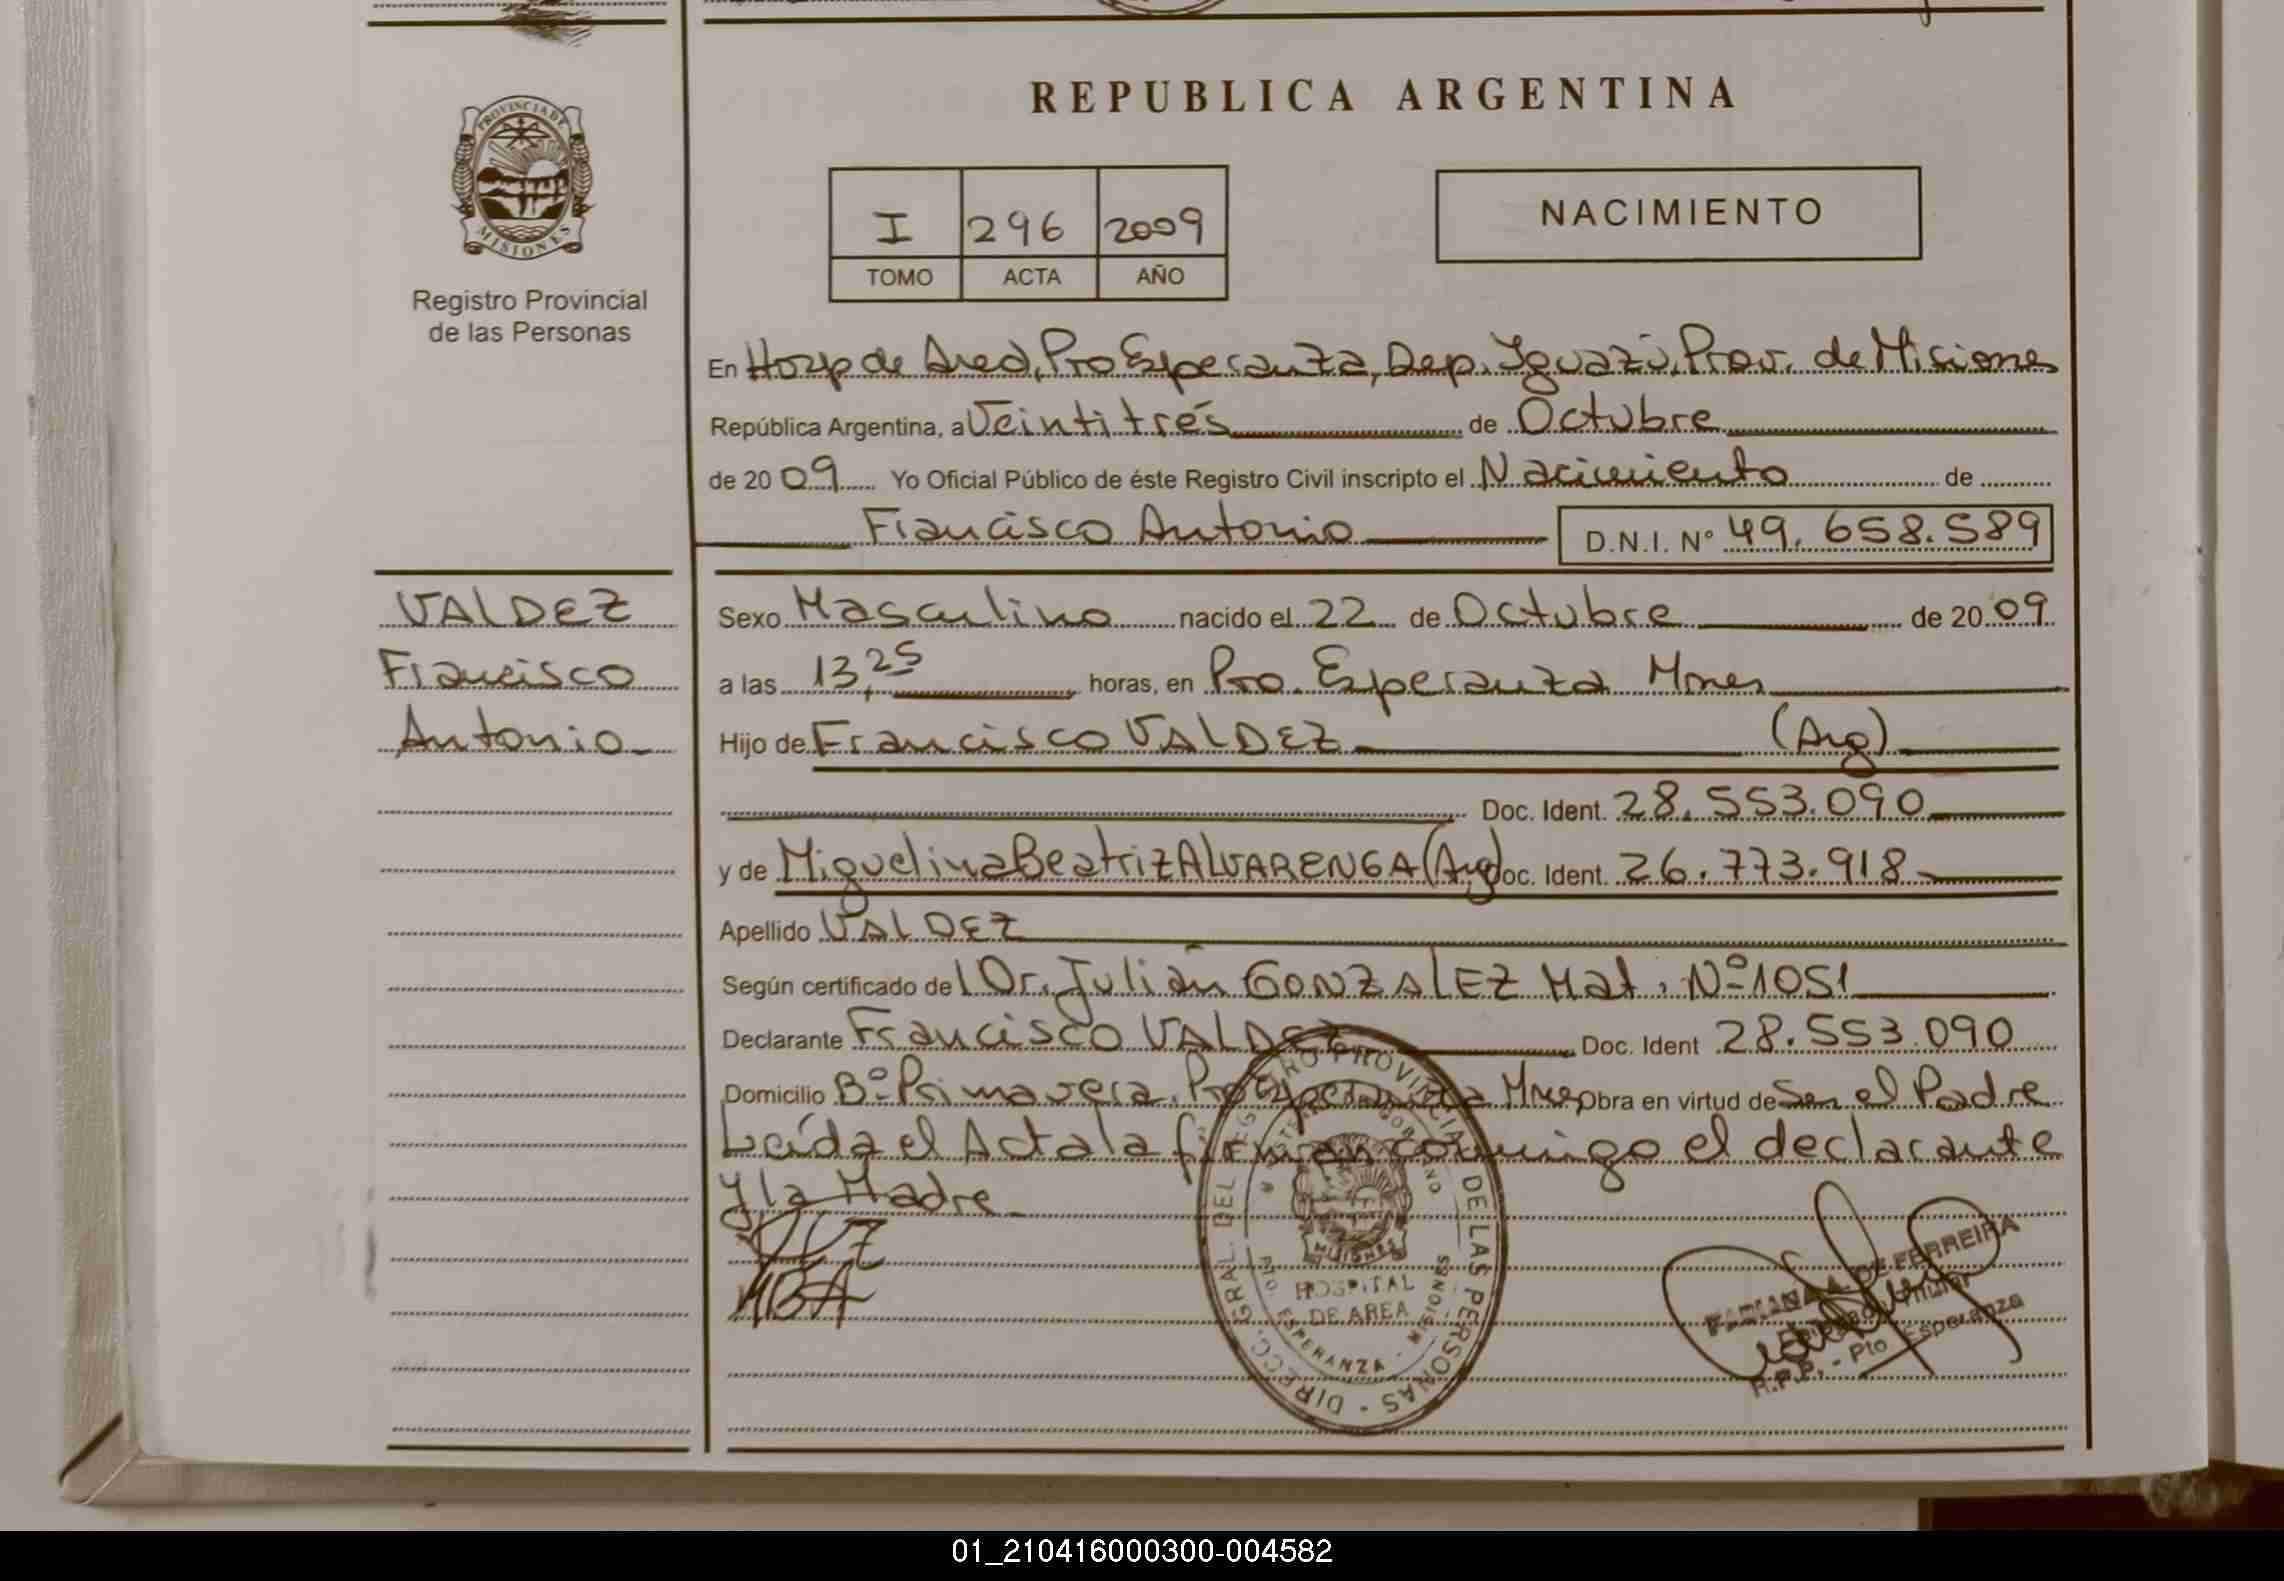 REPUBLICA ARGENTINA
PROVINCIA DE
MISIONES
Registro Provincial
de las Personas
I 296 2009
TOMO ACTA AÑO
NACIMIENTO
En Hosp de Area, Pto Esperanza, Dep. Iguazú, Prov. de Misiones
República Argentina, a Veintitrés de Octubre
de 2009 Yo Oficial Público de éste Registro Civil inscripto el Nacimiento de
Francisco Antonio D.N.I. N° 49.658.589
VALDEZ
Francisco
Antonio
Sexo Masculino nacido el 22 de Octubre de 2009
a las 13,25 horas, en Pto. Esperanza Mnes
Hijo de Francisco VALDEZ (Arg)
Doc. Ident. 28.553.090
y de Miguelina Beatriz ALVARENGA (Arg) Doc. Ident. 26.773.918
Apellido VALDEZ
Según certificado de l Dr. Julián GONZALEZ Mat. Nº 1051
Declarante Francisco VALDEZ Doc. Ident 28.553.090
Domicilio Bº Primavera. Pto Esperanza Mnes Obra en virtud de Ser el Padre
Leída el Acta la firman conmigo el declarante
y la Madre
MBA
DIRECC. GRAL. DEL REGISTRO PROVINCIAL DE LAS PERSONAS
MISIONES
HOSPITAL
DE AREA
ESPERANZA - MISIONES
DE FERREIRA
Titular
R.P.P. - Pto Esperanza
01_210416000300-004582